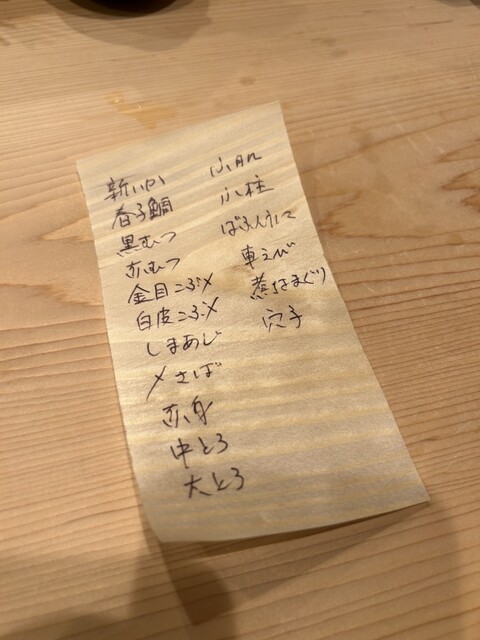 新いか
春子鯛
黒むつ
赤むつ
金目こぶ〆
白皮こぶ〆
しまあじ
〆さば
赤身
中とろ
大とろ
小肌
小柱
ばふんうに
車えび
煮はまぐり
穴子